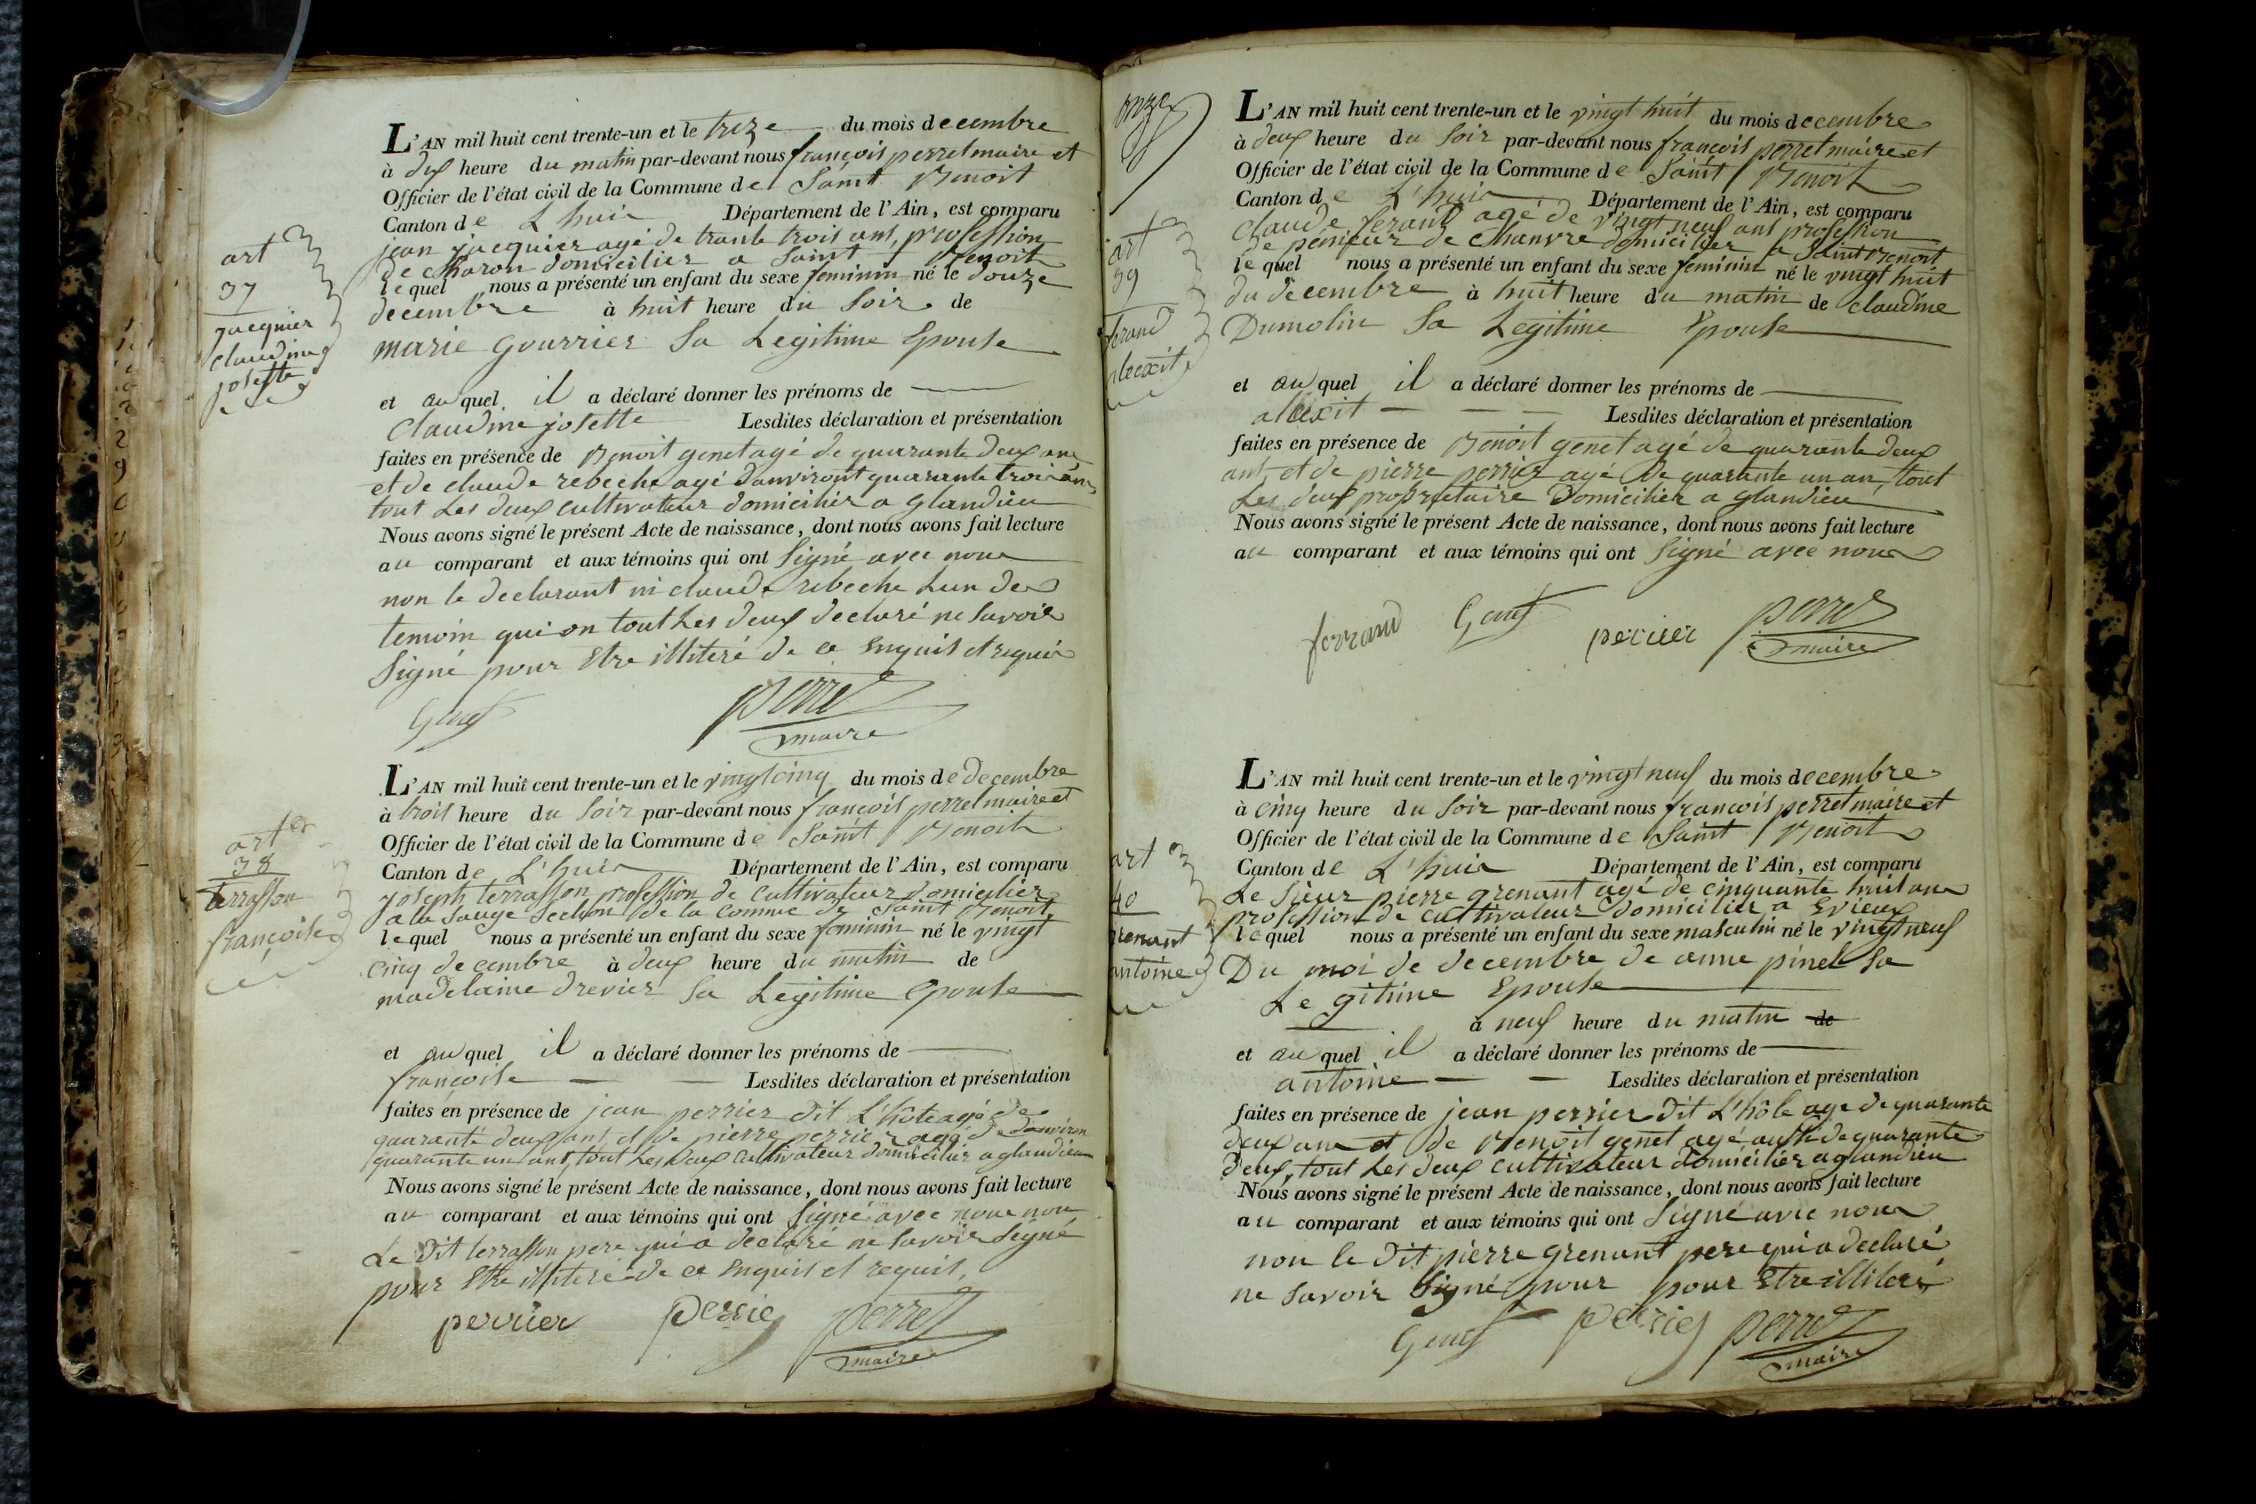 art
37
jacquier
claudine
josette
L'AN mil huit cent trente-un et le treze du mois decembre
à dix heure du matin par-devant nous françois perret maire et
Officier de l'état civil de la Commune de Saint Benoit
Canton de L'huis Département de l'Ain, est comparu
jean jacquier agé de trante trois ans, profession
de charon domicilier a Saint Benoit
lequel nous a présenté un enfant du sexe feminin né le douze
decembre à huit heure du Soir de
marie gourrier Sa Legitime Epouse
et auquel il a déclaré donner les prénoms de
Claudine josette Lesdites déclaration et présentation
faites en présence de Benoit genet agé de quarante deux ans
et de claude rebeche agé danviront quarante trois ans
tout Les deux cultivateur domicilier a glandieu
Nous avons signé le présent Acte de naissance, dont nous avons fait lecture
au comparant et aux témoins qui ont Signé avec nous
non le declarant ni claude rebeche Lun des
temoin qui on tout Les deux declaré ne Savoir
Signé pour Etre illiteré de ce Enquis et requis
Genet
perret
maire
art
38
terrasson
françoise
L'AN mil huit cent trente-un et le vingt cinq du mois de decembre
à trois heure du Soir par-devant nous françois perret maire et
Officier de l'état civil de la Commune de Saint Benoit
Canton de L'huis Département de l'Ain, est comparu
joseph terrasson profession de cultivateur domicilier
a la Sauge Section de la comune de Saint Benoit,
lequel nous a présenté un enfant du sexe feminin né le vingt
cinq decembre à deux heure du matin de
madelaine drevier Sa Legitime Epouse
et auquel il a déclaré donner les prénoms de
françoise Lesdites déclaration et présentation
faites en présence de jean perrier dit L'hôte agé de
quarante deux ans, et de pierre perrier agé de danviron
quarante un ans, tout Les deux cultivateur domicilier a glandieu
Nous avons signé le présent Acte de naissance, dont nous avons fait lecture
au comparant et aux témoins qui ont Signé avec nous non
Le dit terrasson pere qui a declaré ne Savoir Signé
pour Etre illiteré de ce Enquis et requis,
perrier perrier perret
maire
onze
art
39
ferand
alexit
L'AN mil huit cent trente-un et le vingt huit du mois decembre
à deux heure du Soir par-devant nous françois perret maire et
Officier de l'état civil de la Commune de Saint Benoit
Canton de L'huis Département de l'Ain, est comparu
Claude ferand agé de vingt neuf ans profession
de peinieur de Chanvre domicilier a Saint Benoit
lequel nous a présenté un enfant du sexe feminin né le vingt huit
du decembre à huit heure du matin de claudine
Dumolin Sa Legitime Epouse
et auquel il a déclaré donner les prénoms de
alexit Lesdites déclaration et présentation
faites en présence de Benoit genet agé de quarante deux
ans, et de pierre perrier agé de quarante un an, tout
Les deux proprietaire Domicilier a glandieu
Nous avons signé le présent Acte de naissance, dont nous avons fait lecture
au comparant et aux témoins qui ont Signé avec nous
ferrand Genet perrier perret
maire
art
40
grenant
antoine
L'AN mil huit cent trente-un et le vingt neuf du mois decembre
à cinq heure du Soir par-devant nous françois perret maire et
Officier de l'état civil de la Commune de Saint Benoit
Canton de L'huis Département de l'Ain, est comparu
Le Sieur pierre grenant agé de cinquante huit ans
profession de cultivateur Domicilier a Evieux
lequel nous a présenté un enfant du sexe masculin né le vingt neuf
Du moi de decembre de anne pinel Sa
Le gitime Epouse
à neuf heure du matin de
et auquel il a déclaré donner les prénoms de
antoine Lesdites déclaration et présentation
faites en présence de jean perrier dit L'hôte age de quarante
deux ans et de Benoit genet agé aussi de quarante
deux, tout Les deux cultivateur domicilier a glandieu
Nous avons signé le présent Acte de naissance, dont nous avons fait lecture
au comparant et aux témoins qui ont Signé avec nous
non le dit pierre grenant pere qui a declaré
ne Savoir Signé pour pour Etre illiteré
Genet perrier perret
maire